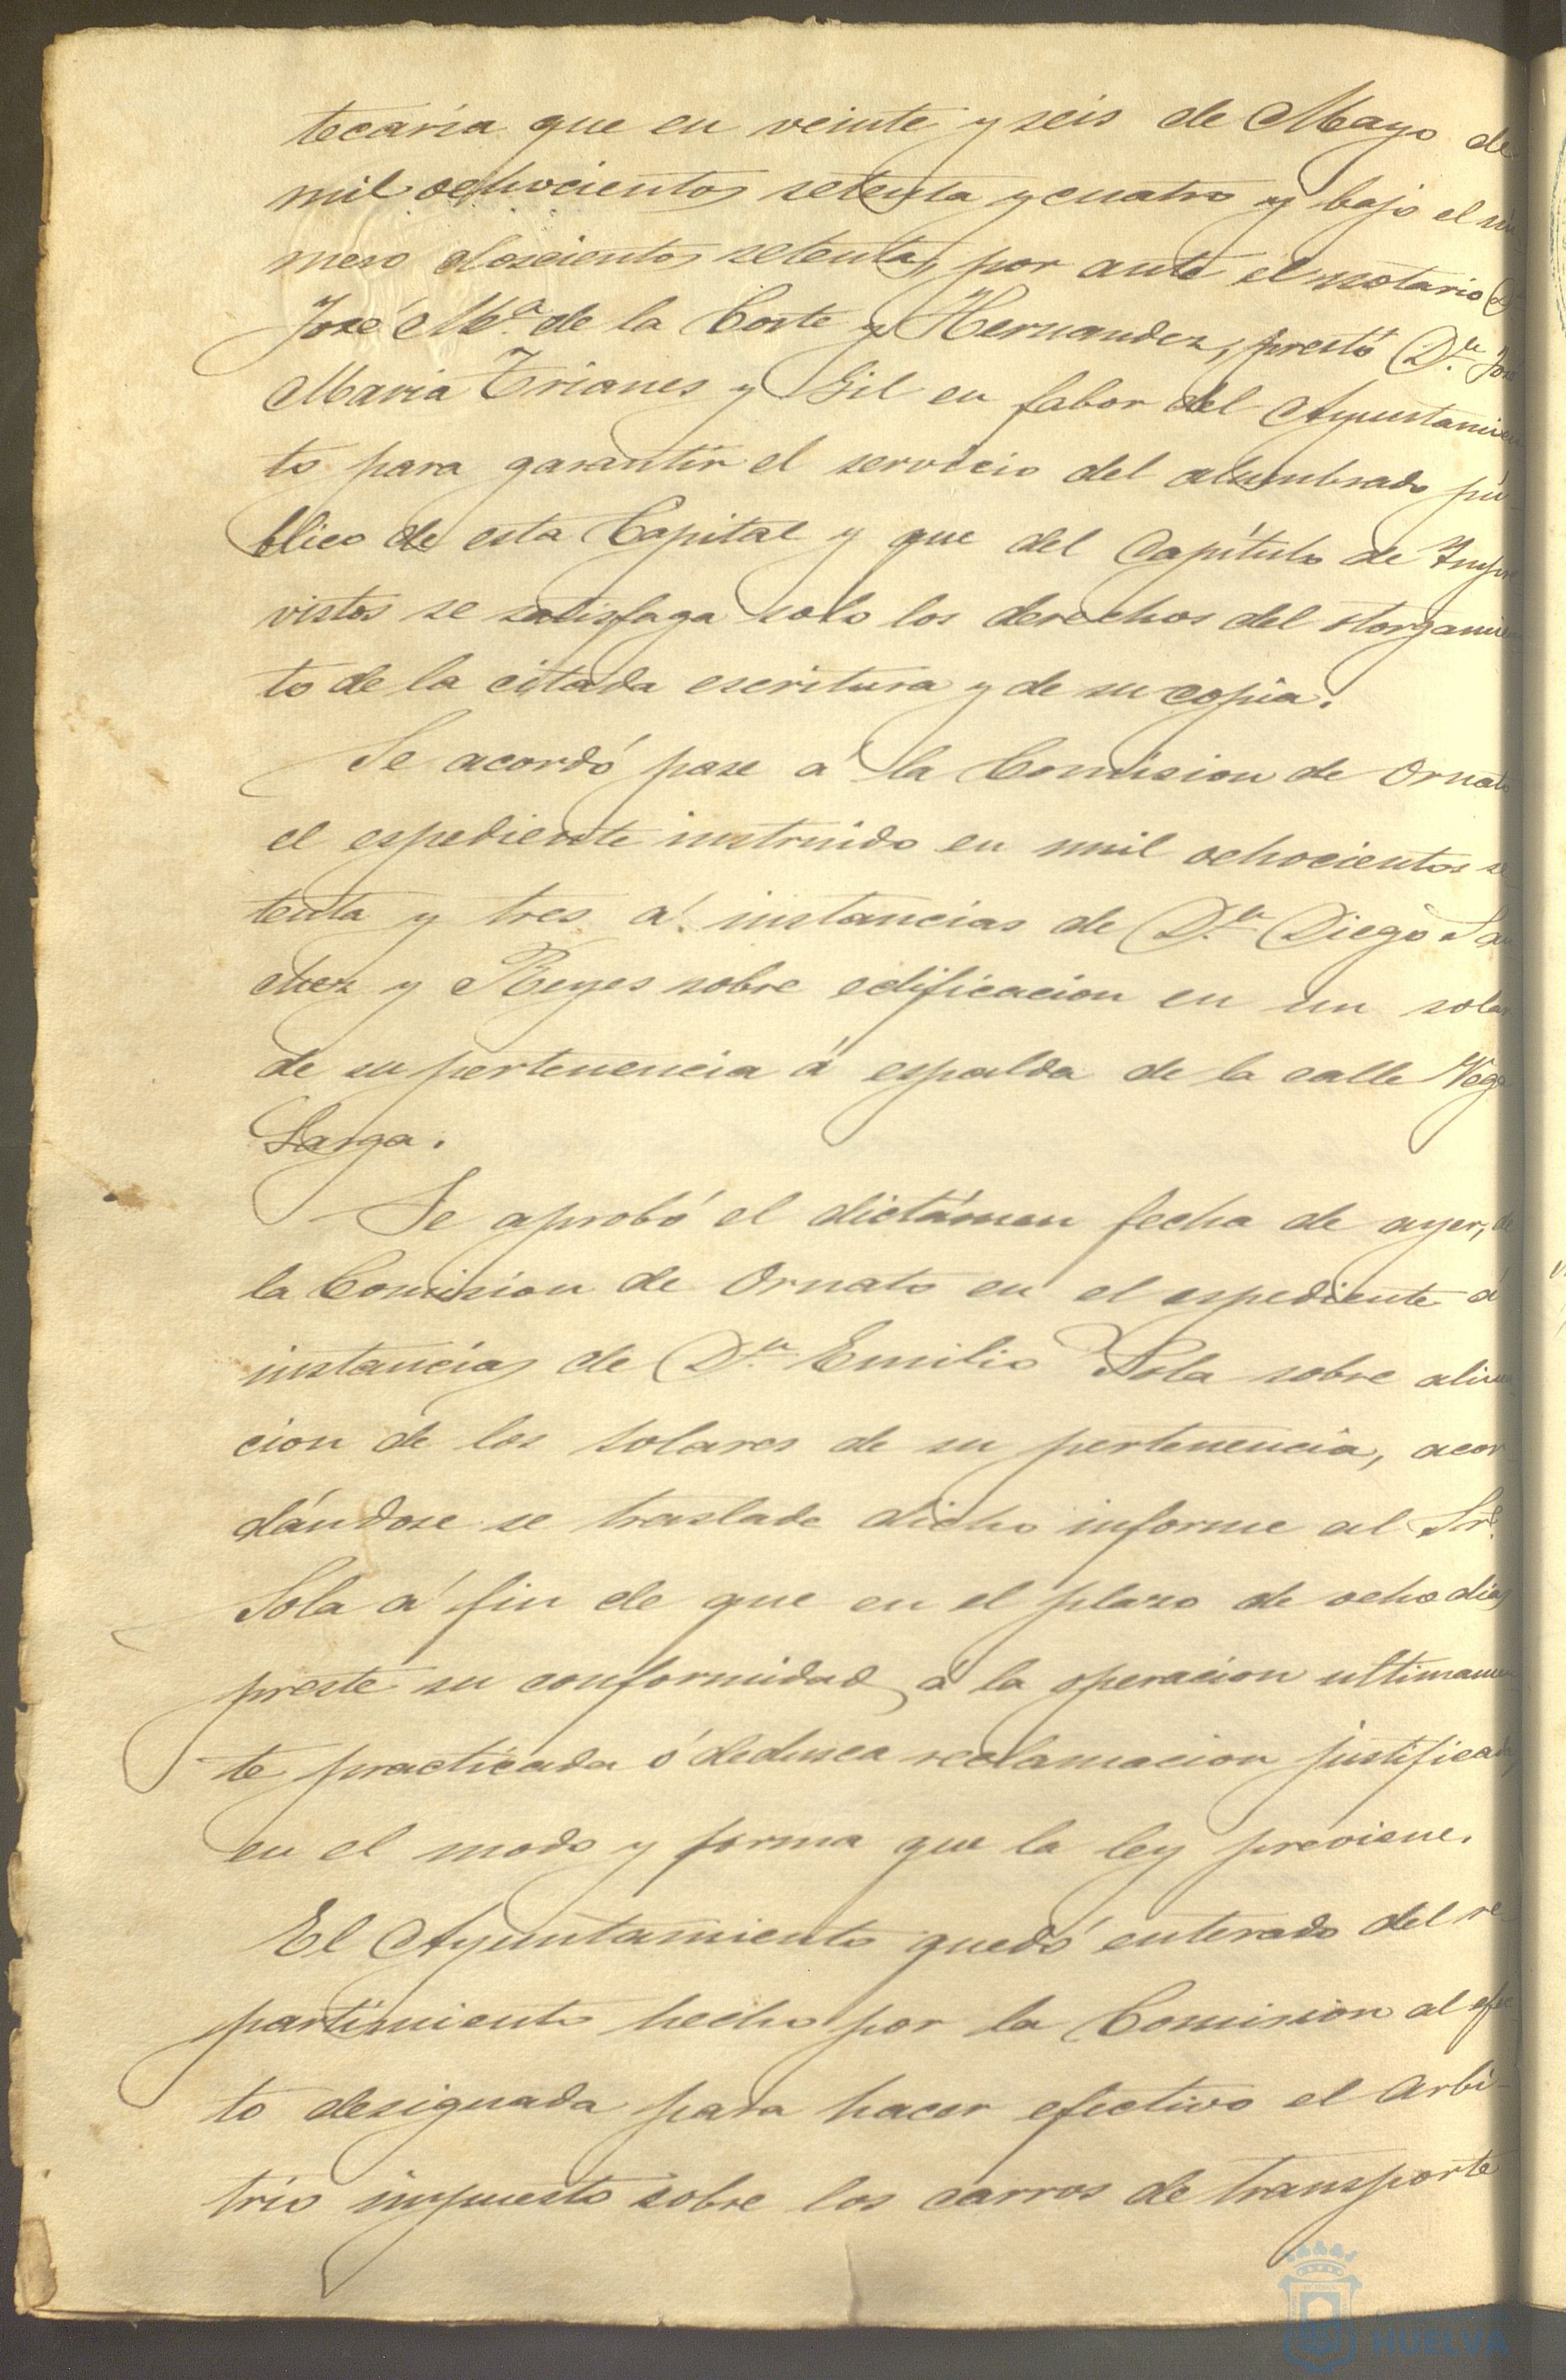 tecaria que en veinte y seis de Mayo de
mil ochocientos setenta y cuatro y bajo el nú-
mero doscientos setenta, por ante el notario D.
José M.ª de la Corte y Hernandez, prestó D.n José
Maria Trianes y Gil en fabor del Ayuntamien
to para garantir el servicio del alumbrado pú-
blico de esta Capital y que del Capítulo de Impre
vistos se satisfaga solo los derechos del otorgamien
to de la citada escritura y de su copia.
Se acordó pase á la Comision de Ornato
el espediente instruido en mil ochocientos se
tenta y tres á instancias de D.n Diego San
chez y Reyes sobre edificacion en un solar
de su pertenencia á espalda de la calle Vega
Larga.
Se aprobó el dictámen fecha de ayer, de
la Comision de Ornato en el espediente á
instancias de D.n Emilio Sola sobre alinea
cion de los solares de su pertenencia, acor
dándose se traslade dicho informe al Sr.
Sola á fin de que en el plazo de ocho dias
preste su conformidad á la operacion ultimamen
te practicada ó deduzca reclamacion justificada,
en el modo y forma que la ley previene.
El Ayuntamiento quedó enterado del re-
partimiento hecho por la Comision al efec
to designada para hacer efectivo el arbi-
trio impuesto sobre los carros de transporte
HUELVA